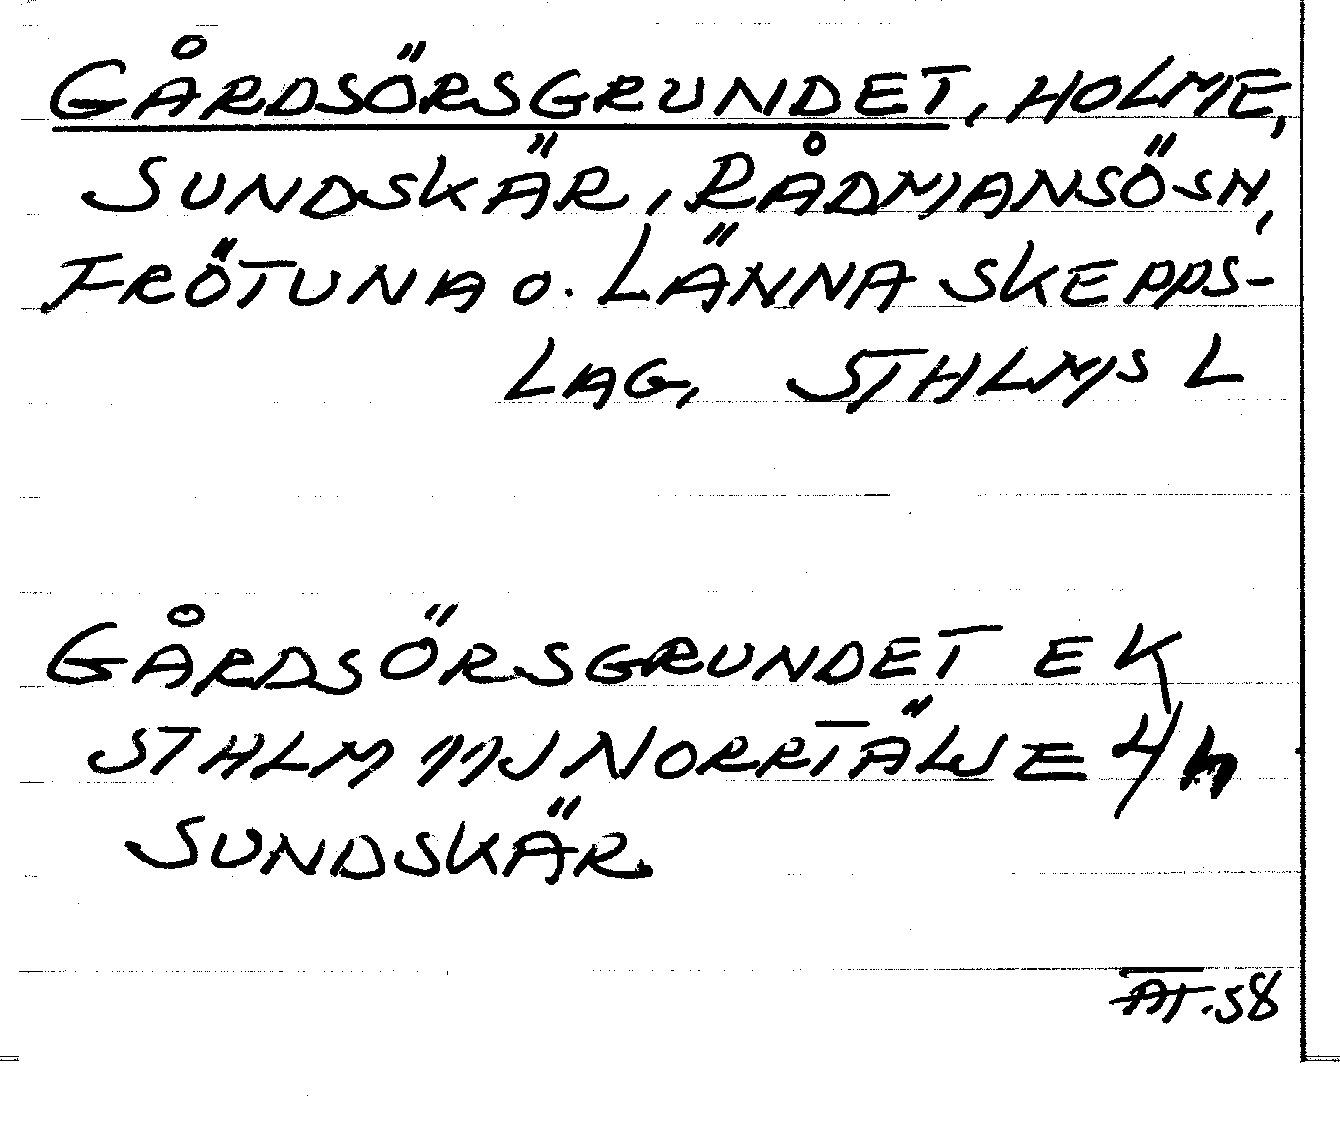 GÅRDSÖRSGRUNDET, HOLME,
SUNDSKÄR, RÅDMANSÖ SN,
FRÖTUNA o. LÄNNA SKEPPS-
LAG, STHLMS L
GÅRDSÖRSGRUNDET EK
STHLM 11J NORRTÄLJE
SUNDSKÄR.
AT.58